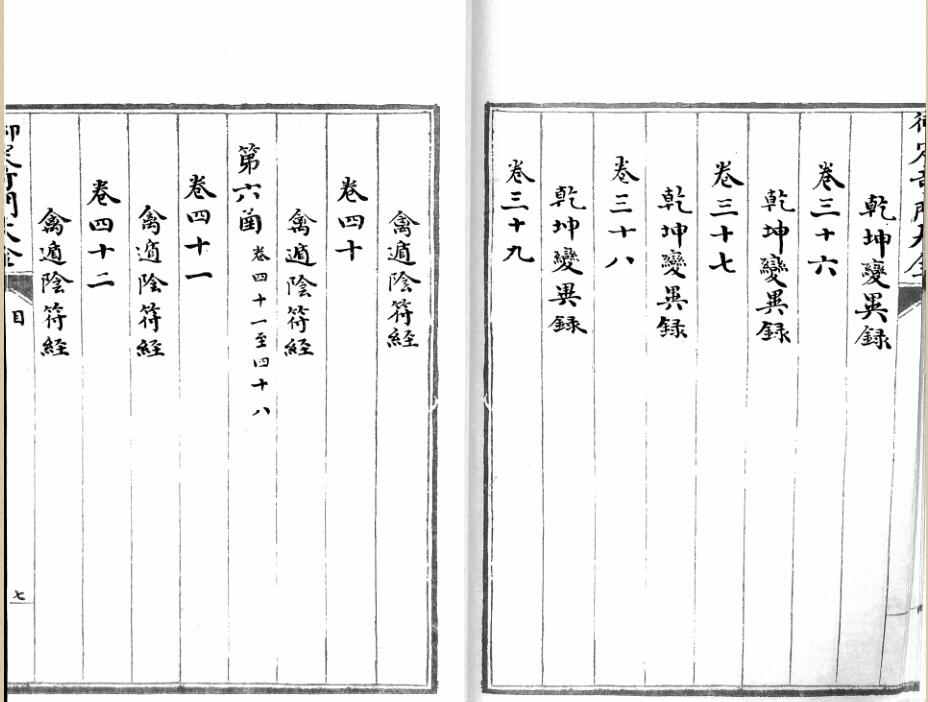 乾坤變異録
卷三十六
乾坤變異録
卷三十七
乾坤變異録
卷三十八
乾坤變異録
卷三十九
禽遁陰符経
卷四十
禽遁陰符経
第六凾 卷四十一至四十八
卷四十一
禽遁陰符経
卷四十二
禽遁陰符経
目
七